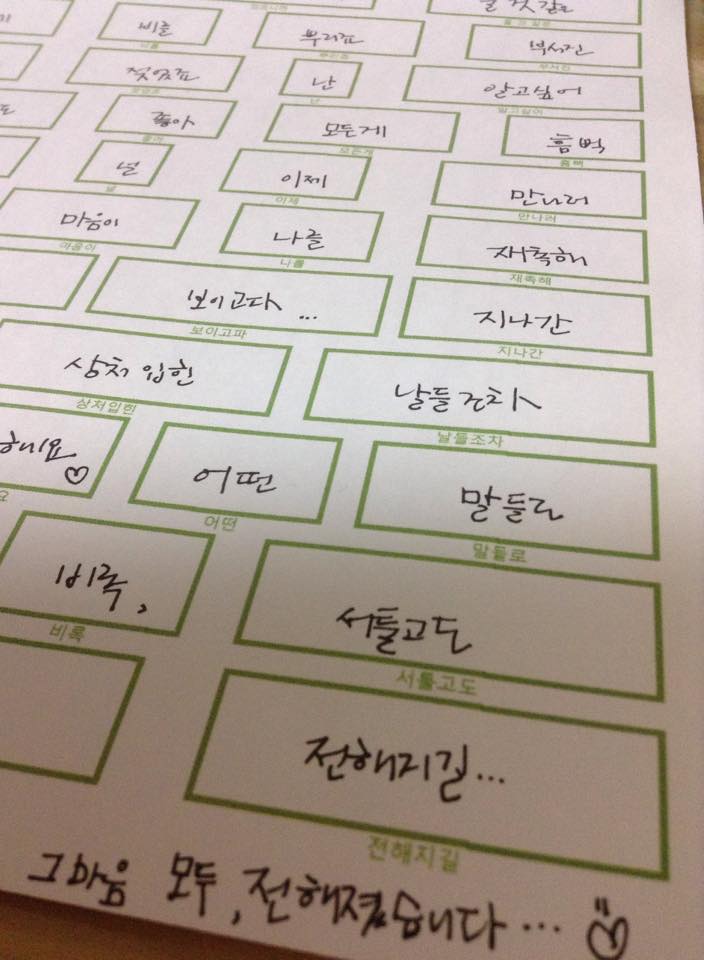 비를 뿌리고 부서진
비를 부서진
젖었고 난 알고싶어
난 알고싶어
좋아 모든게 흠뻑
좋아 모든게 흠뻑
널 이제 만나러
널 이제 만나러
마음이 나를 재촉해
마음이 나를 재촉해
보이고파 ... 지나간
보이고파 지나간
상처 입힌 날들조차
상처입힌 날들조차
해요♡ 어떤 말들로
요 어떤 말들로
비록, 서툴고도
비록 서툴고도
전해지길...
전해지길
그 마음 모두, 전해졌습니다...